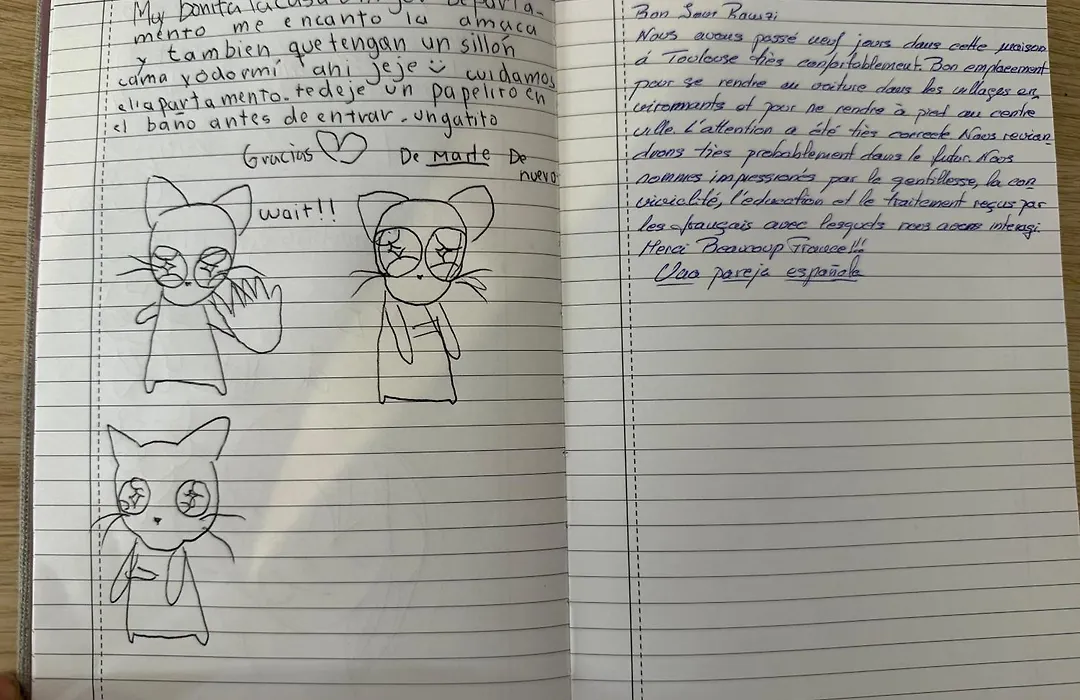 Muy bonita la casa
mento me encanto la amaca
y tambien que tengan un sillón
cama y odormí ahi jeje cuidamos
el apartamento. te deje un papelito en
el baño antes de entrar. un gatito
Gracias De Maite De
nuevo
wait!!
Bon Jour Rouzi
Nous avons passé neuf jours dans cette maison
á Toulouse tiès confortablement. Bon emplacement
pour se rendre au voiture dans les villages en
vironnants et pour ne rendre à pied au centre
ville. L'attention a été tiès correcte Nous revien
drons tiès probablement dans le futur. Nous
nommes impressionés par la gentillesse, la con
vivialité, l'éducation et le traitement reçus par
les français avec lesquels nous avons interagi.
Merci Beaucoup France!!
Una pareja española